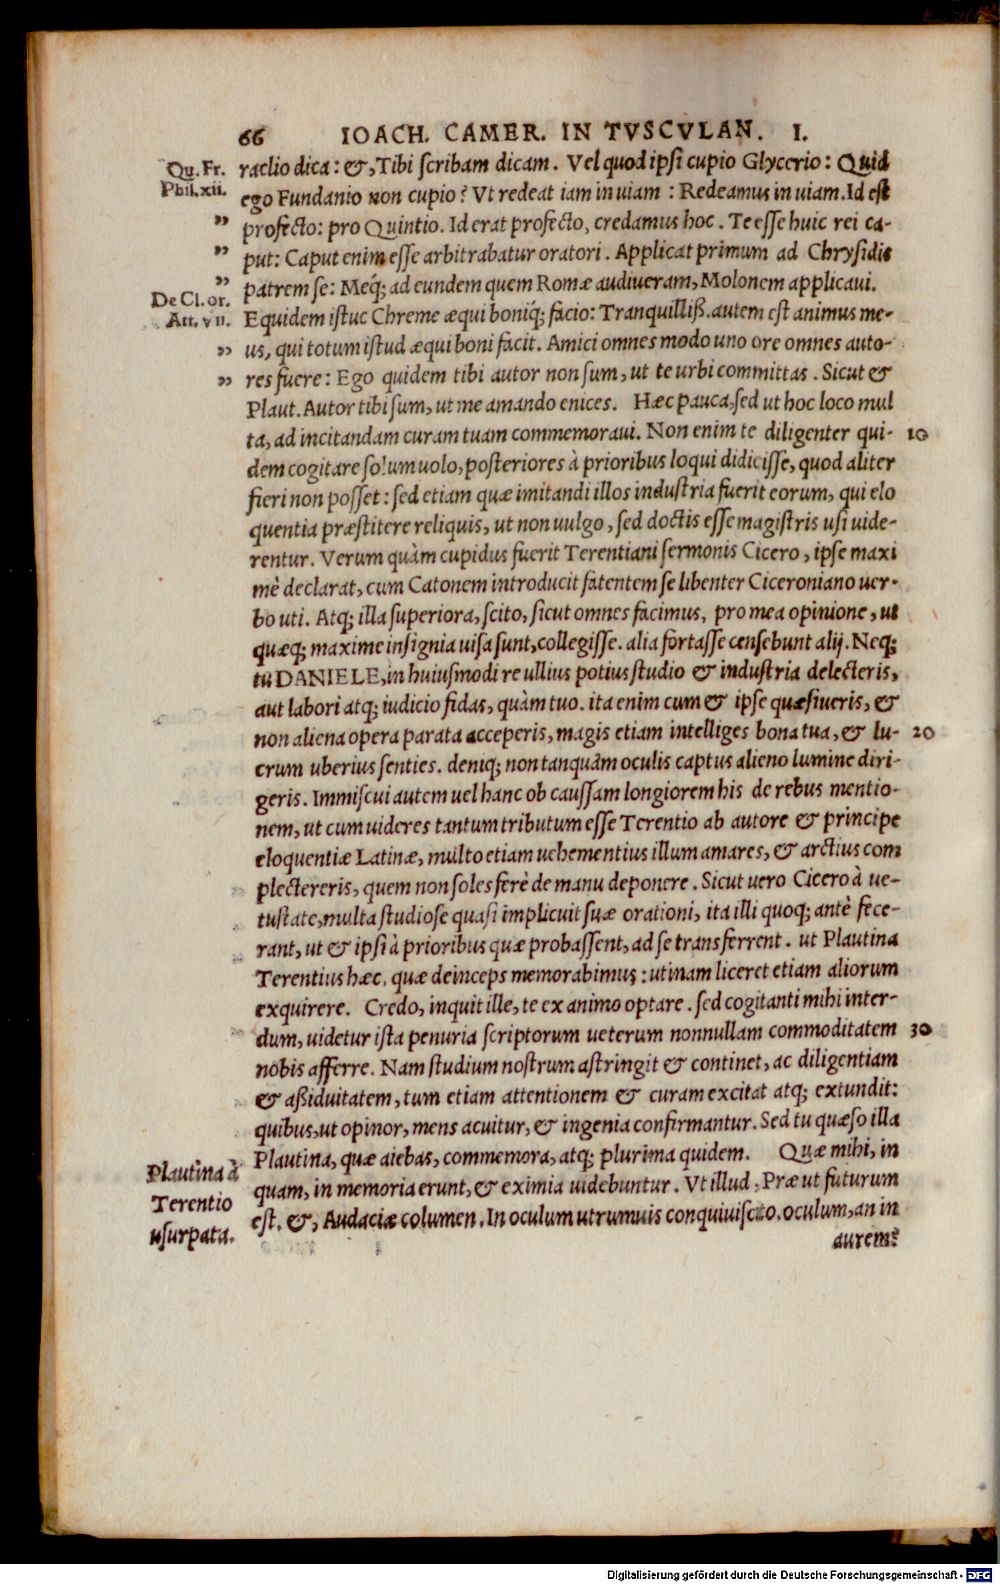 66 IOACH. CAMER. IN TVSCVLAN. I.
Qu. Fr. raclio dica: &, Tibi scribam dicam. Vel quod ipsi cupio Glycerio: Quid
Phil. xii. ego Fundanio non cupio? Vt redeat iam in uiam: Redeamus in uiam. Id est
” profecto: pro Quintio. Id erat profecto, credamus hoc. Te esse huic rei ca-
” put: Caput enim esse arbitrabatur oratori. Applicat primum ad Chrysidis
” patrem se: Meq́; ad eundem quem Romæ audiueram, Molonem applicaui.
De Cl. or.
Att. vii. Equidem istuc Chreme æqui boniq́; facio: Tranquilliß. autem est animus me-
” us, qui totum istud æqui boni facit. Amici omnes modo uno ore omnes auto-
” res fuere: Ego quidem tibi autor non sum, ut te urbi committas. Sicut &
Plaut. Autor tibi sum, ut me amando enices. Hæc pauca, sed ut hoc loco mul
ta, ad incitandam curam tuam commemoraui. Non enim te diligenter qui- 10
dem cogitare solum uolo, posteriores à prioribus loqui didicisse, quod aliter
fieri non posset: sed etiam quæ imitandi illos industria fuerit eorum, qui elo
quentia præstitere reliquis, ut non uulgo, sed doctis esse magistris usi uide-
rentur. Verum quàm cupidus fuerit Terentiani sermonis Cicero, ipse maxi
mè declarat, cum Catonem introducit fatentem se libenter Ciceroniano uer-
bo uti. Atq; illa superiora, scito, sicut omnes facimus, pro mea opinione, ut
quæq; maxime insignia uisa sunt, collegisse. alia fortasse censebunt alij. Neq;
tu DANIELE, in huiusmodi re ullius potius studio & industria delecteris,
aut labori atq; iudicio fidas, quàm tuo. ita enim cum & ipse quæsiueris, &
non aliena opera parata acceperis, magis etiam intelliges bona tua, & lu- 20
crum uberius senties. deniq; non tanquàm oculis captus alieno lumine diri-
geris. Immiscui autem uel hanc ob caussam longiorem his de rebus mentio-
nem, ut cum uideres tantum tributum esse Terentio ab autore & principe
eloquentiæ Latinæ, multo etiam uehementius illum amares, & arctius com
plectereris, quem non soles ferè de manu deponere. Sicut uero Cicero à ue-
tustate, multa studiose quasi implicuit suæ orationi, ita illi quoq; antè fece-
rant, ut & ipsi à prioribus quæ probassent, ad se transferrent. ut Plautina
Terentius hæc, quæ deinceps memorabimus: utinam liceret etiam aliorum
exquirere. Credo, inquit ille, te ex animo optare. sed cogitanti mihi inter-
dum, uidetur ista penuria scriptorum ueterum nonnullam commoditatem 30
nobis afferre. Nam studium nostrum astringit & continet, ac diligentiam
& aßiduitatem, tum etiam attentionem & curam excitat atq; extundit:
quibus, ut opinor, mens acuitur, & ingenia confirmantur. Sed tu quæso illa
Plautina, quæ aiebas, commemora, atq; plurima quidem. Quæ mihi, in
Plautina à
Terentio
usurpata.
quam, in memoria erunt, & eximia uidebuntur. Vt illud, Præ ut futurum
est, &, Audaciæ columen. In oculum utrumuis conquiuiscito, oculum, an in
aurem?
Digitalisierung gefördert durch die Deutsche Forschungsgemeinschaft - DFG